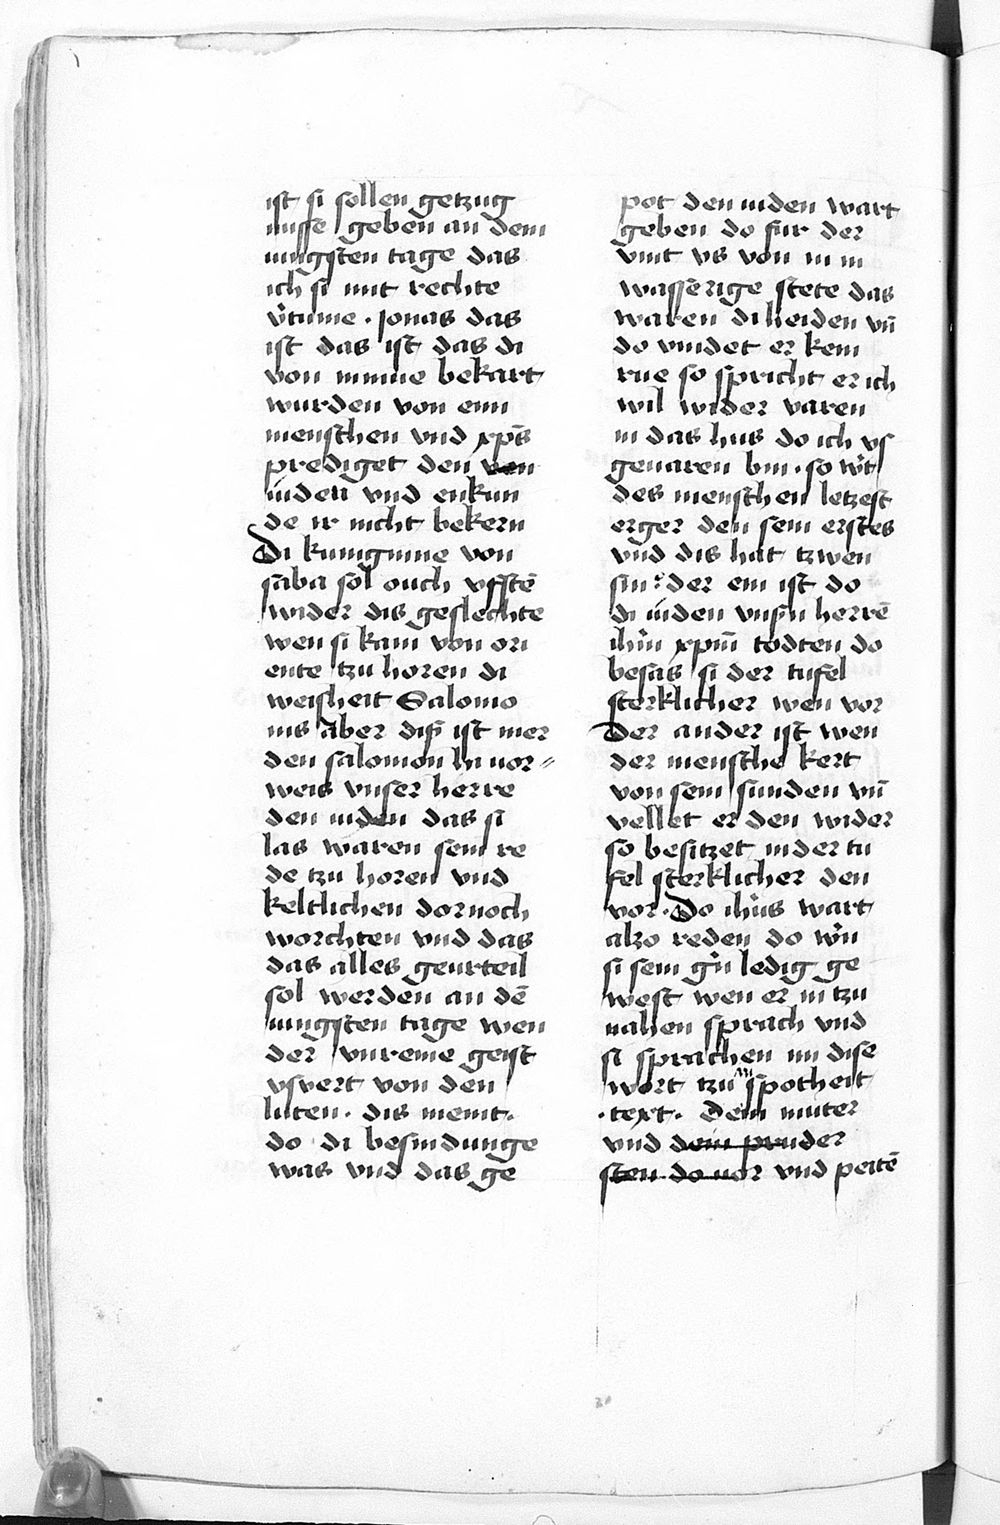 ist si sollen getzug
nisse geben an dem
iungsten tage das
ich si mit rechte
v̾tume · jonas das
ist das ist das di
von ninnue bekart
wurden von eim
menschen vnd xp̅s
prediget den ven
iuden vnd enkun
de ir nicht bekern
Di kunignnne von
saba sol ouch vfstē
wider dis geslechte
wen si kam von ori
ente tzu horen di
weisheit Salomo
nis aber diß ist mer
den salomon hi uor⸗
weis vnser herre
den iuden das si
las waren sein re
de tzu horen vnd
keltlichen dornoch
worchten vnd das
das alles geurteil
sol werden an dē
iungsten tage wen
der vnreine geist
vsvert von den
luten · dis meint ·
do di besindunge
was vnd das ge
pot den iuden wart
geben do fur der
vint vs von in in
wasserige stete das
waren di heiden vn̄
do vindet er kein
rue so spricht er ich
wil wider varen
in das hus do ich vs
geuaren bin · so w̾t
des menschen letzest
erger den sein erstes
vnd dis hat tzwen
sin : der ein ist do
di iuden vns̾n herrē
ih̾m xpm̄ todten do
besas si der tufel
sterklicher wen vor
Der ander ist wen
der mensche kert
von sein sunden vn̄
vellet er den wider
so besitzet in der tu
fel sterklicher den
vor · Do ih̾us wart
alzo reden do w̾n
si sein g̾n ledig ge
west wen er in tzu
nahen sprach vnd
si sprachen im dise
wort tzu im spotheit
· text · Dein muter
vnd dein pruder
sten do uor vnd peitē